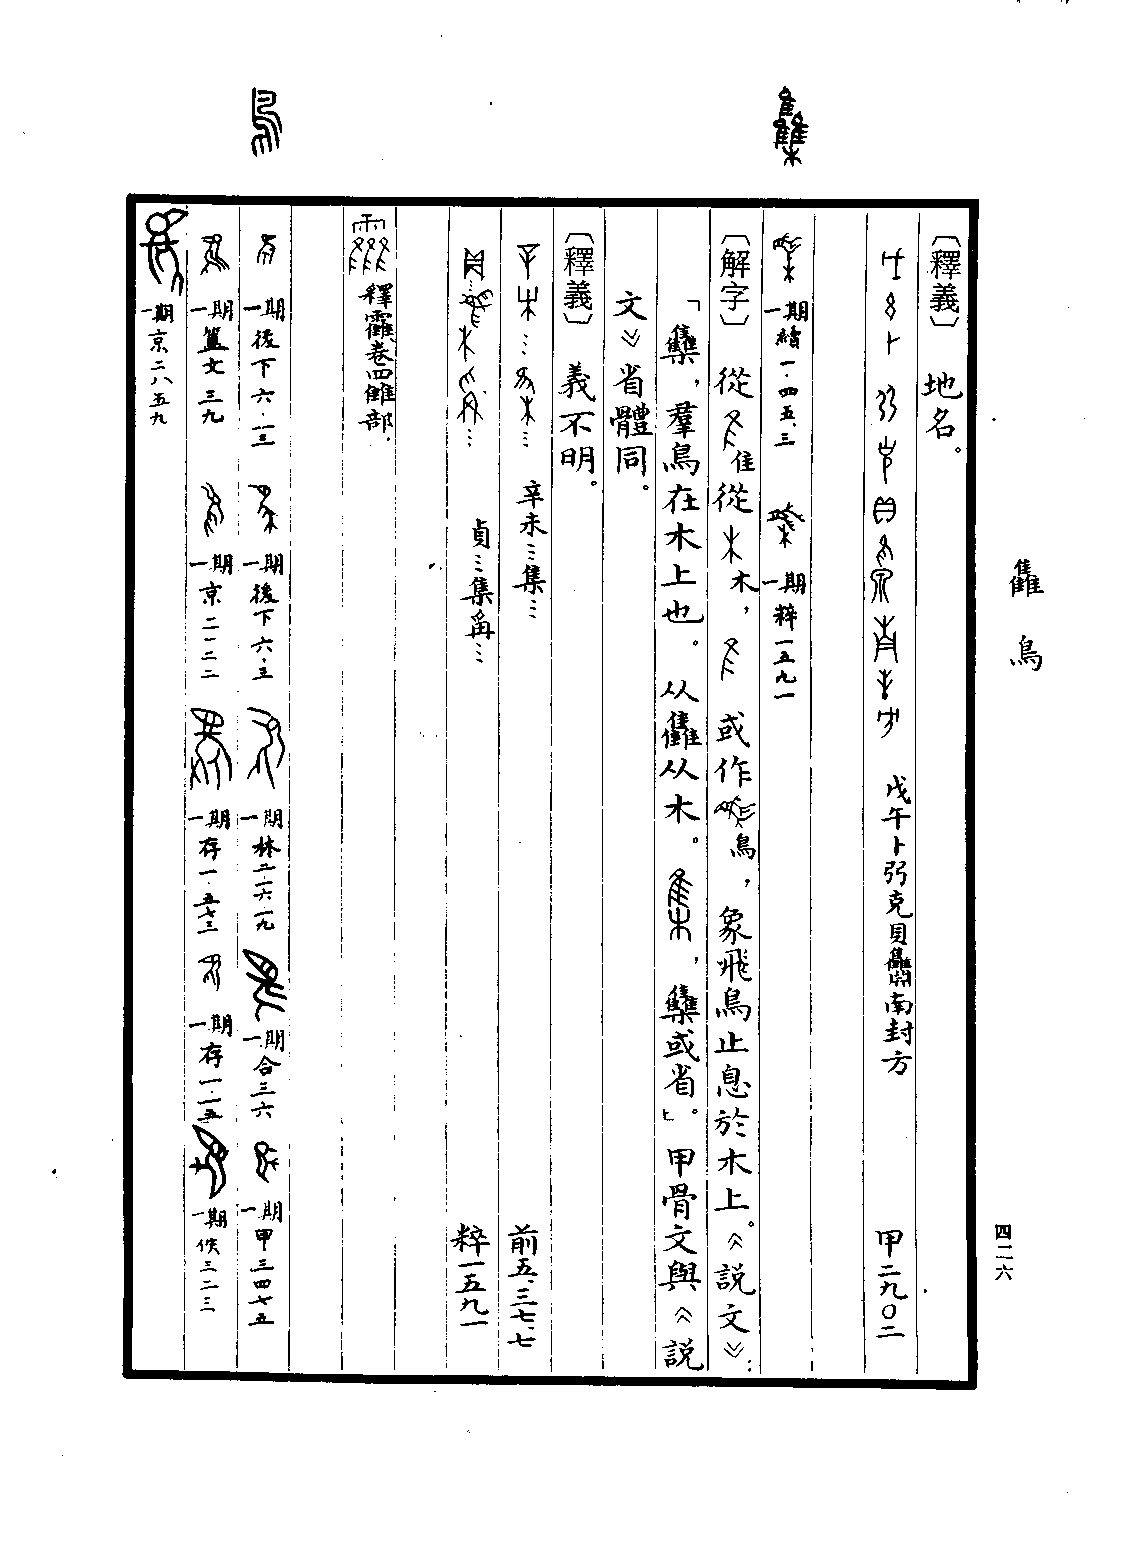 雥 鳥
四二六
〔釋義〕地名。
戊午卜弜克貝䨊南封方 甲二九〇二
一期續一·四五·三 一期粹一五九一
〔解字〕從隹從木,或作鳥,象飛鳥止息於木上。《說文》:
「雧,羣鳥在木上也。从雥从木。集,雧或省」。甲骨文與《說
文》省體同。
〔釋義〕義不明。
辛未…集… 前五·三七·七
貞…集爯… 粹一五九一
釋靃,卷四雔部.
一期後下六·一三 一期後下六· 一期林二·一六·一九 一期合三六 一期甲三四七五
一期簠文三九 一期京二一二二 一期存一·五七三 一期存一·一五 一期佚三二三
一期京二八五九